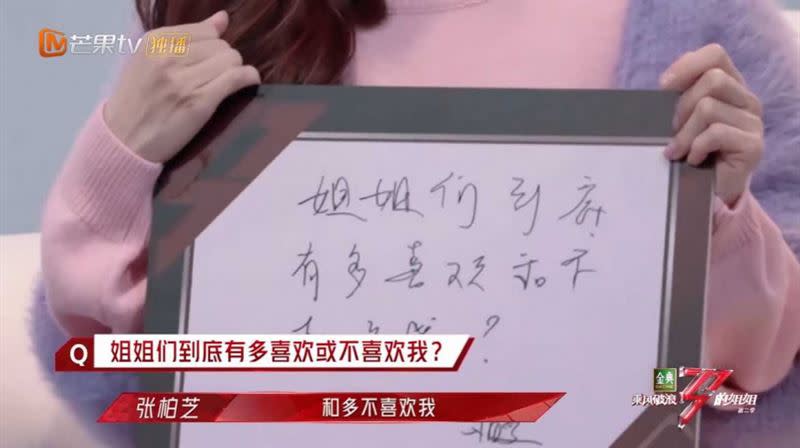 芒果tv 独播
姐姐们到底
有多喜欢和不
？
Q 姐姐们到底有多喜欢或不喜欢我？
张柏芝 和多不喜欢我
金典
乘风破浪 的姐姐
第二季